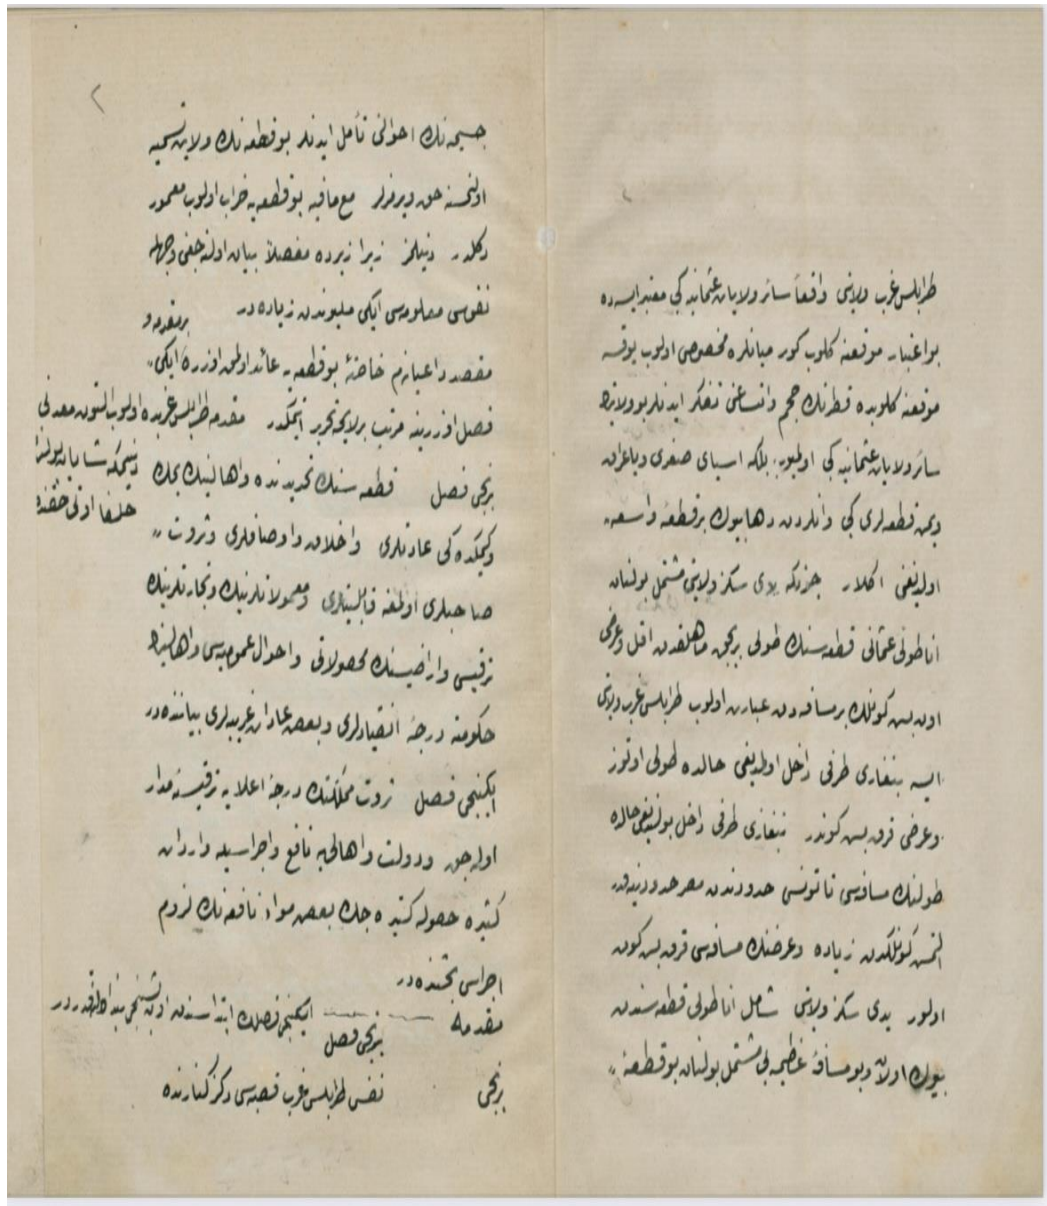 طرابلس غرب ولايتى واقعاً سائر ولايات عثمانيه كبى معتبر ايسه ده
بو اعتبار موقعنه كلوب كورميانلره مخصوص اولوب يوقسه
موقعنه كلوبده قطرنك حجم واتساعنى تفكر ايدنلر بو ولايتى
سائر ولايات عثمانيه كبى اوليوب بلكه اسياى صغرى وياعراق
ويمن قطعه لرى كبى وانلردن دها بيوك بر قطعۀ واسعه
اولديغنى اكلار چونكه يدى سكز ولايتى مشتمل بولنان
اناطولى عثمانى قطعه سنك طولى بر بچق ماهلقدن اقل وعرضى
اون بش كونلك بر مسافه دن عبارت اولوب طرابلس غرب ولايتى
ايسه بنغازى طرفى داخل اولديغى حالده طولى اوتوز
وعرضى قرق بش كوندر بنغازى طرفى داخل بولنديغى حالده
طولنك مسافه سى تا تونس حدودندن مصر حدودينه قدر
التمش كونلكدن زياده وعرضنك مسافه سى قرق بش كون
اولور يدى سكز ولايتى شامل اناطولى قطعه سندن
بيوك اولان وبو مسافۀ عظيمه يى مشتمل بولنان بو قطعۀ
جسيمه نك احوالنى تأمل ايدنلر بو قطعه نك ولايت تسميه
اولنمسنه حق ويرمزلر مع مافيه بو قطعه يه خراب اولوب معمور
دكلدر دينلمز زيرا زيرده مفصلاً بيان اولنه جغى وجهله
نفوسى معلومه سى ايكى مليوندن زياده در
بر مقدمه و
مقصد داعيانه م خاصۀ بو قطعه يه عائد اولمق اوزره ايكى
فصل اوزرينه مرتب بر لايحه تحرير ايتمكدر مقدمه طرابلس غربده اولوب التون معدنى
ديمكه شايان بولنان
حلفا اوتى حقنده
برنجى فصل قطعه سنك تحديدنده واهاليسنك يمك
وكيمكده كى عادتلرى واخلاق واوصافلرى وثروت
صاحبلرى اولمغه قابليتلرى ومعمولاتلرينك وتجارتلرينك
ترقيسى واراضيسنك محصولاتى واحوال عموميه سى واهاليسنك
حكومته درجۀ انقيادلرى وبعض عادات غريبه لرى بياننده در
ايكنجى فصل ثروت مملكتك درجۀ اعلايه ترقيسنه مدار
اوله جق ودولت واهالى يه نافع واجراسيله واردات
كثيره حصوله كتيره جك بعض مواد نافعه نك لزوم
اجراسى بحثنده در
مقدمه ايكنجى فصلك ابتداسندن اون بشنجى بنده قدر در
برنجى فصل
برنجى نفس طرابلس غرب قصبه سى دكز كنارنده